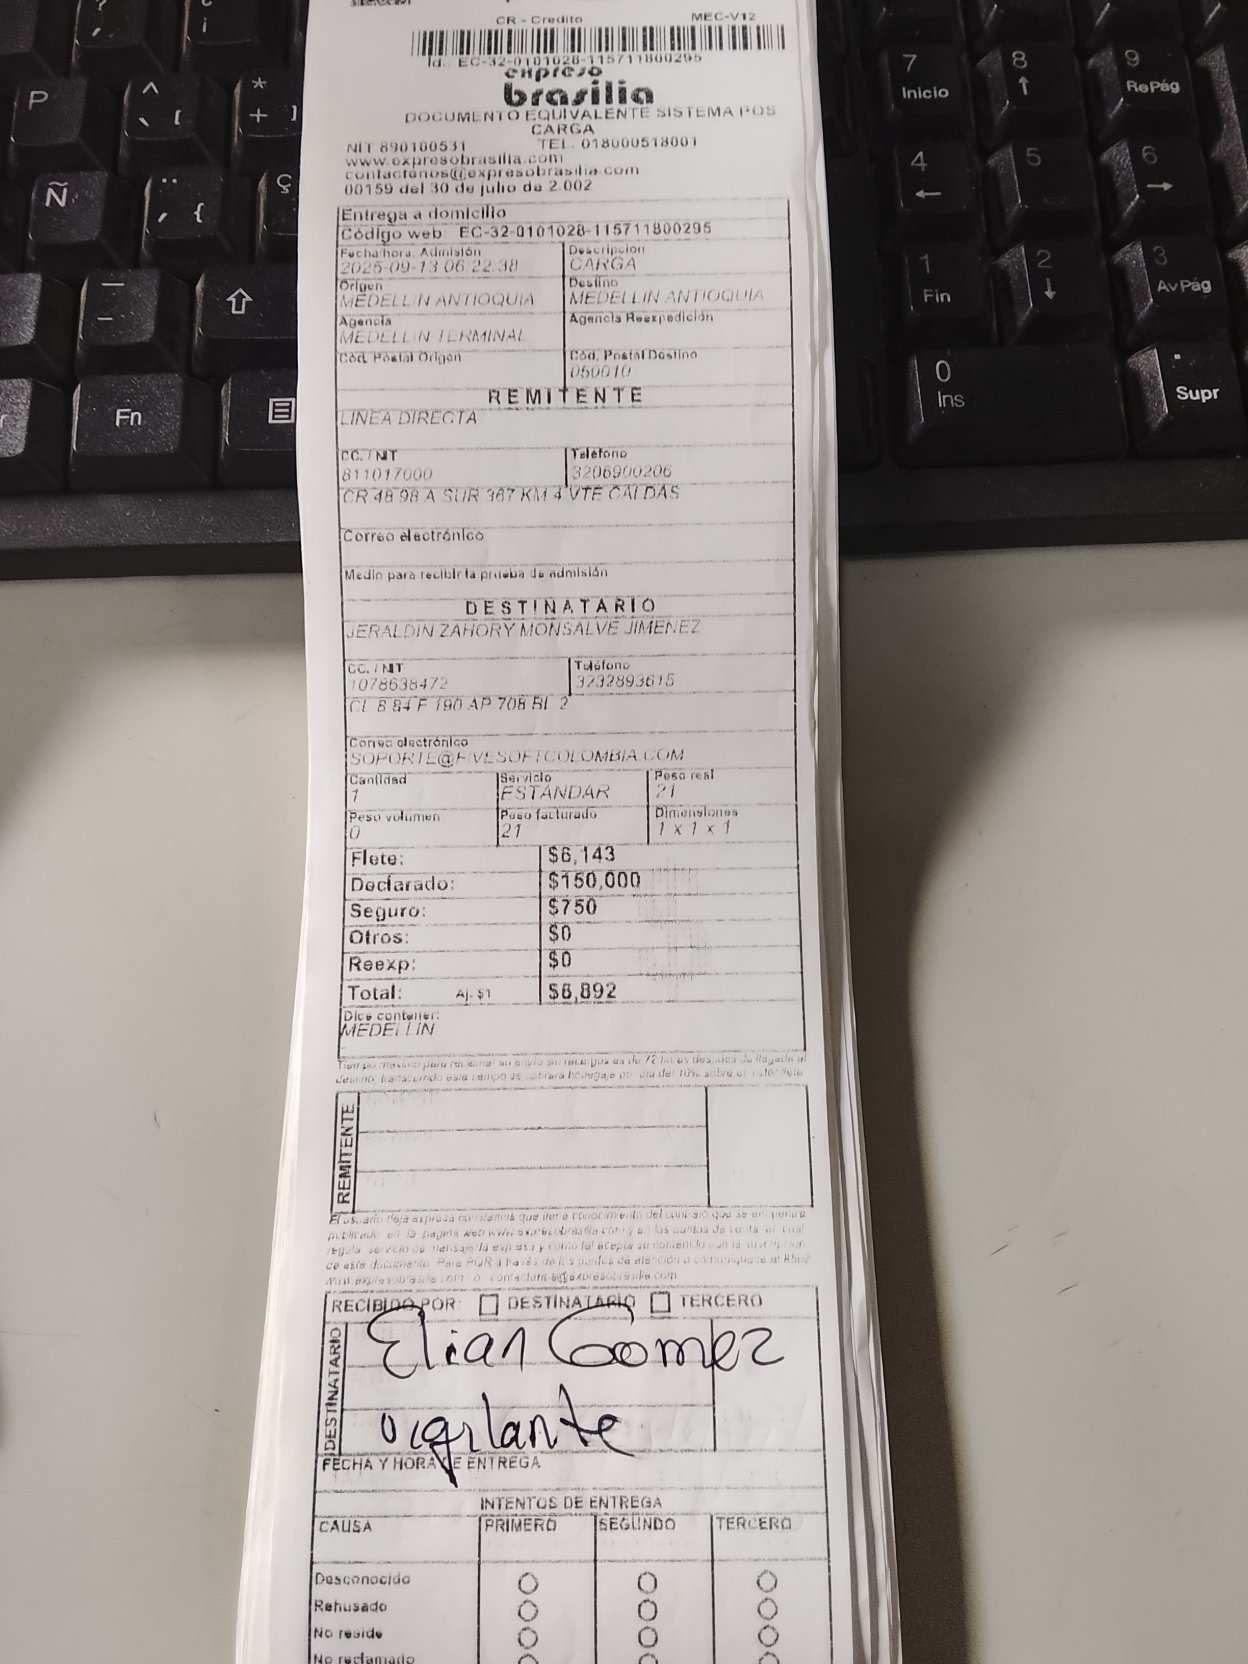 CR - Credito MEC-V12
Id.. EC-32-0101028-115711800295
expreso
brasilia
DOCUMENTO EQUIVALENTE SISTEMA POS
CARGA
NIT 890100531 TEL. 018000518001
www.expresobrasilia.com
contactenos@expresobrasilia.com
00159 del 30 de julio de 2.002
Entrega a domicilio
Código web: EC-32-0101028-115711800295
Fecha/hora. Admisión Descripcion
2025-09-13 06:22:38 CARGA
Origen Destino
MEDELLIN ANTIOQUIA MEDELLIN ANTIOQUIA
Agencia Agencia Reexpedición
MEDELLIN TERMINAL
Cód. Postal Origen Cód. Postal Destino
050010
REMITENTE
LINEA DIRECTA
CC. / NIT Teléfono
811017000 3206900206
CR 48 98 A SUR 367 KM 4 VTE CALDAS
Correo electrónico
Medio para recibir la prueba de admisión
DESTINATARIO
JERALDIN ZAHORY MONSALVE JIMENEZ
CC. / NIT Teléfono
1078638472 3232893615
CL 8 84 F 190 AP 708 BL 2
Correo electrónico
SOPORTE@FIVESOFTCOLOMBIA.COM
Cantidad Servicio Peso real
1 ESTANDAR 21
Peso volumen Peso facturado Dimensiones
0 21 1 x 1 x 1
Flete: $6,143
Declarado: $150,000
Seguro: $750
Otros: $0
Reexp: $0
Total: Aj. $1 $6,892
Dice contener:
MEDELLIN
REMITENTE
El usuario deja expresa constancia que tuvo conocimiento del contrato que se encuentra
publicado en la página web www.expresobrasilia.com y en los puntos de venta, el cual
regula servicio de mensajería expresa y como tal acepta su contenido con la suscripción
de este documento. Para PQR a través de los puntos de atención o comuníquese al #502
www.expresobrasilia.com o contactenos@expresobrasilia.com
RECIBIDO POR: DESTINATARIO TERCERO
DESTINATARIO
Elian Gomez
vigilante
FECHA Y HORA DE ENTREGA
INTENTOS DE ENTREGA
CAUSA PRIMERO SEGUNDO TERCERO
Desconocido
Rehusado
No reside
No reclamado
P
Ñ
Ç
Fn
7 Inicio
8
9 RePág
4
5
6
1 Fin
2
3 AvPág
0 Ins
. Supr